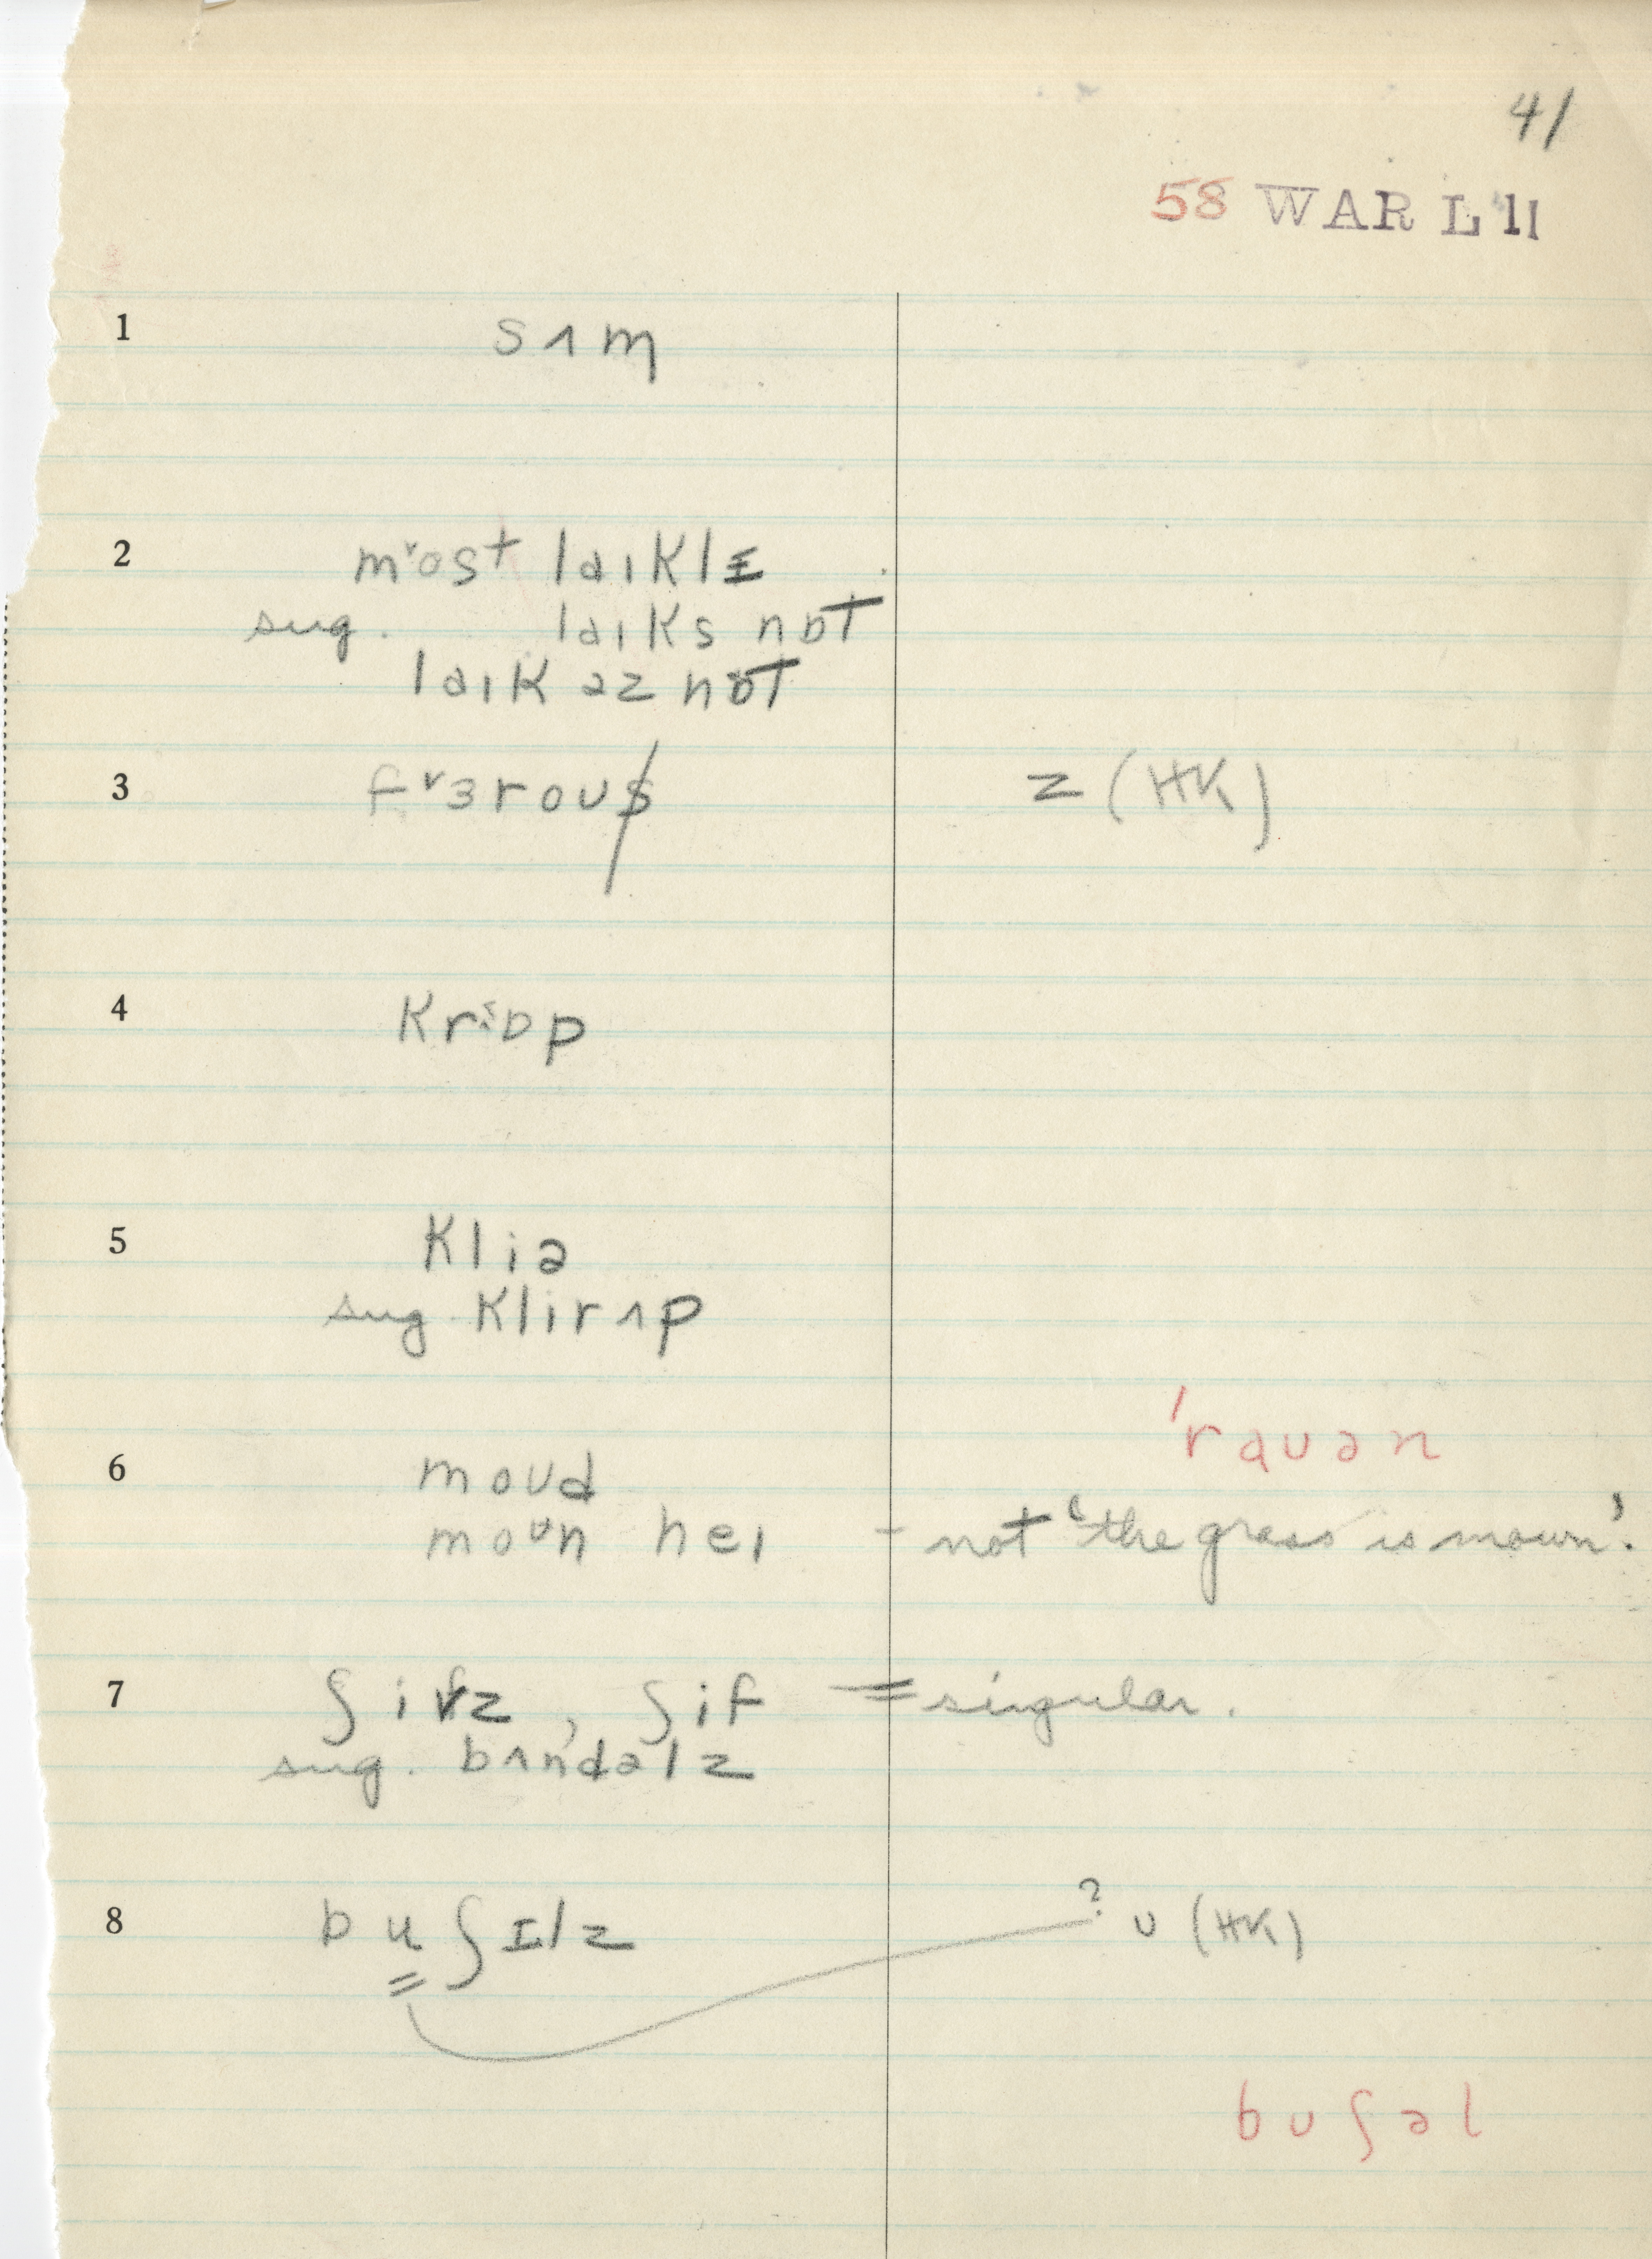 41
58 WAR L 11
1 sʌm
2 mᵛost laɪklɪ
sug. laɪks nɒt
laɪk əz nɒt
3 fᵛɜroʊs z (HK)
4 krɒp
5 kliə
sug. klirʌp
'raʊən
6 moʊd
moʊn heɪ - not 'the grass is mown'.
7 ʃivz, ʃif = singular.
sug. bʌndəlz
8 buʃɪlz ? ʊ (HK)
bʊʃəl